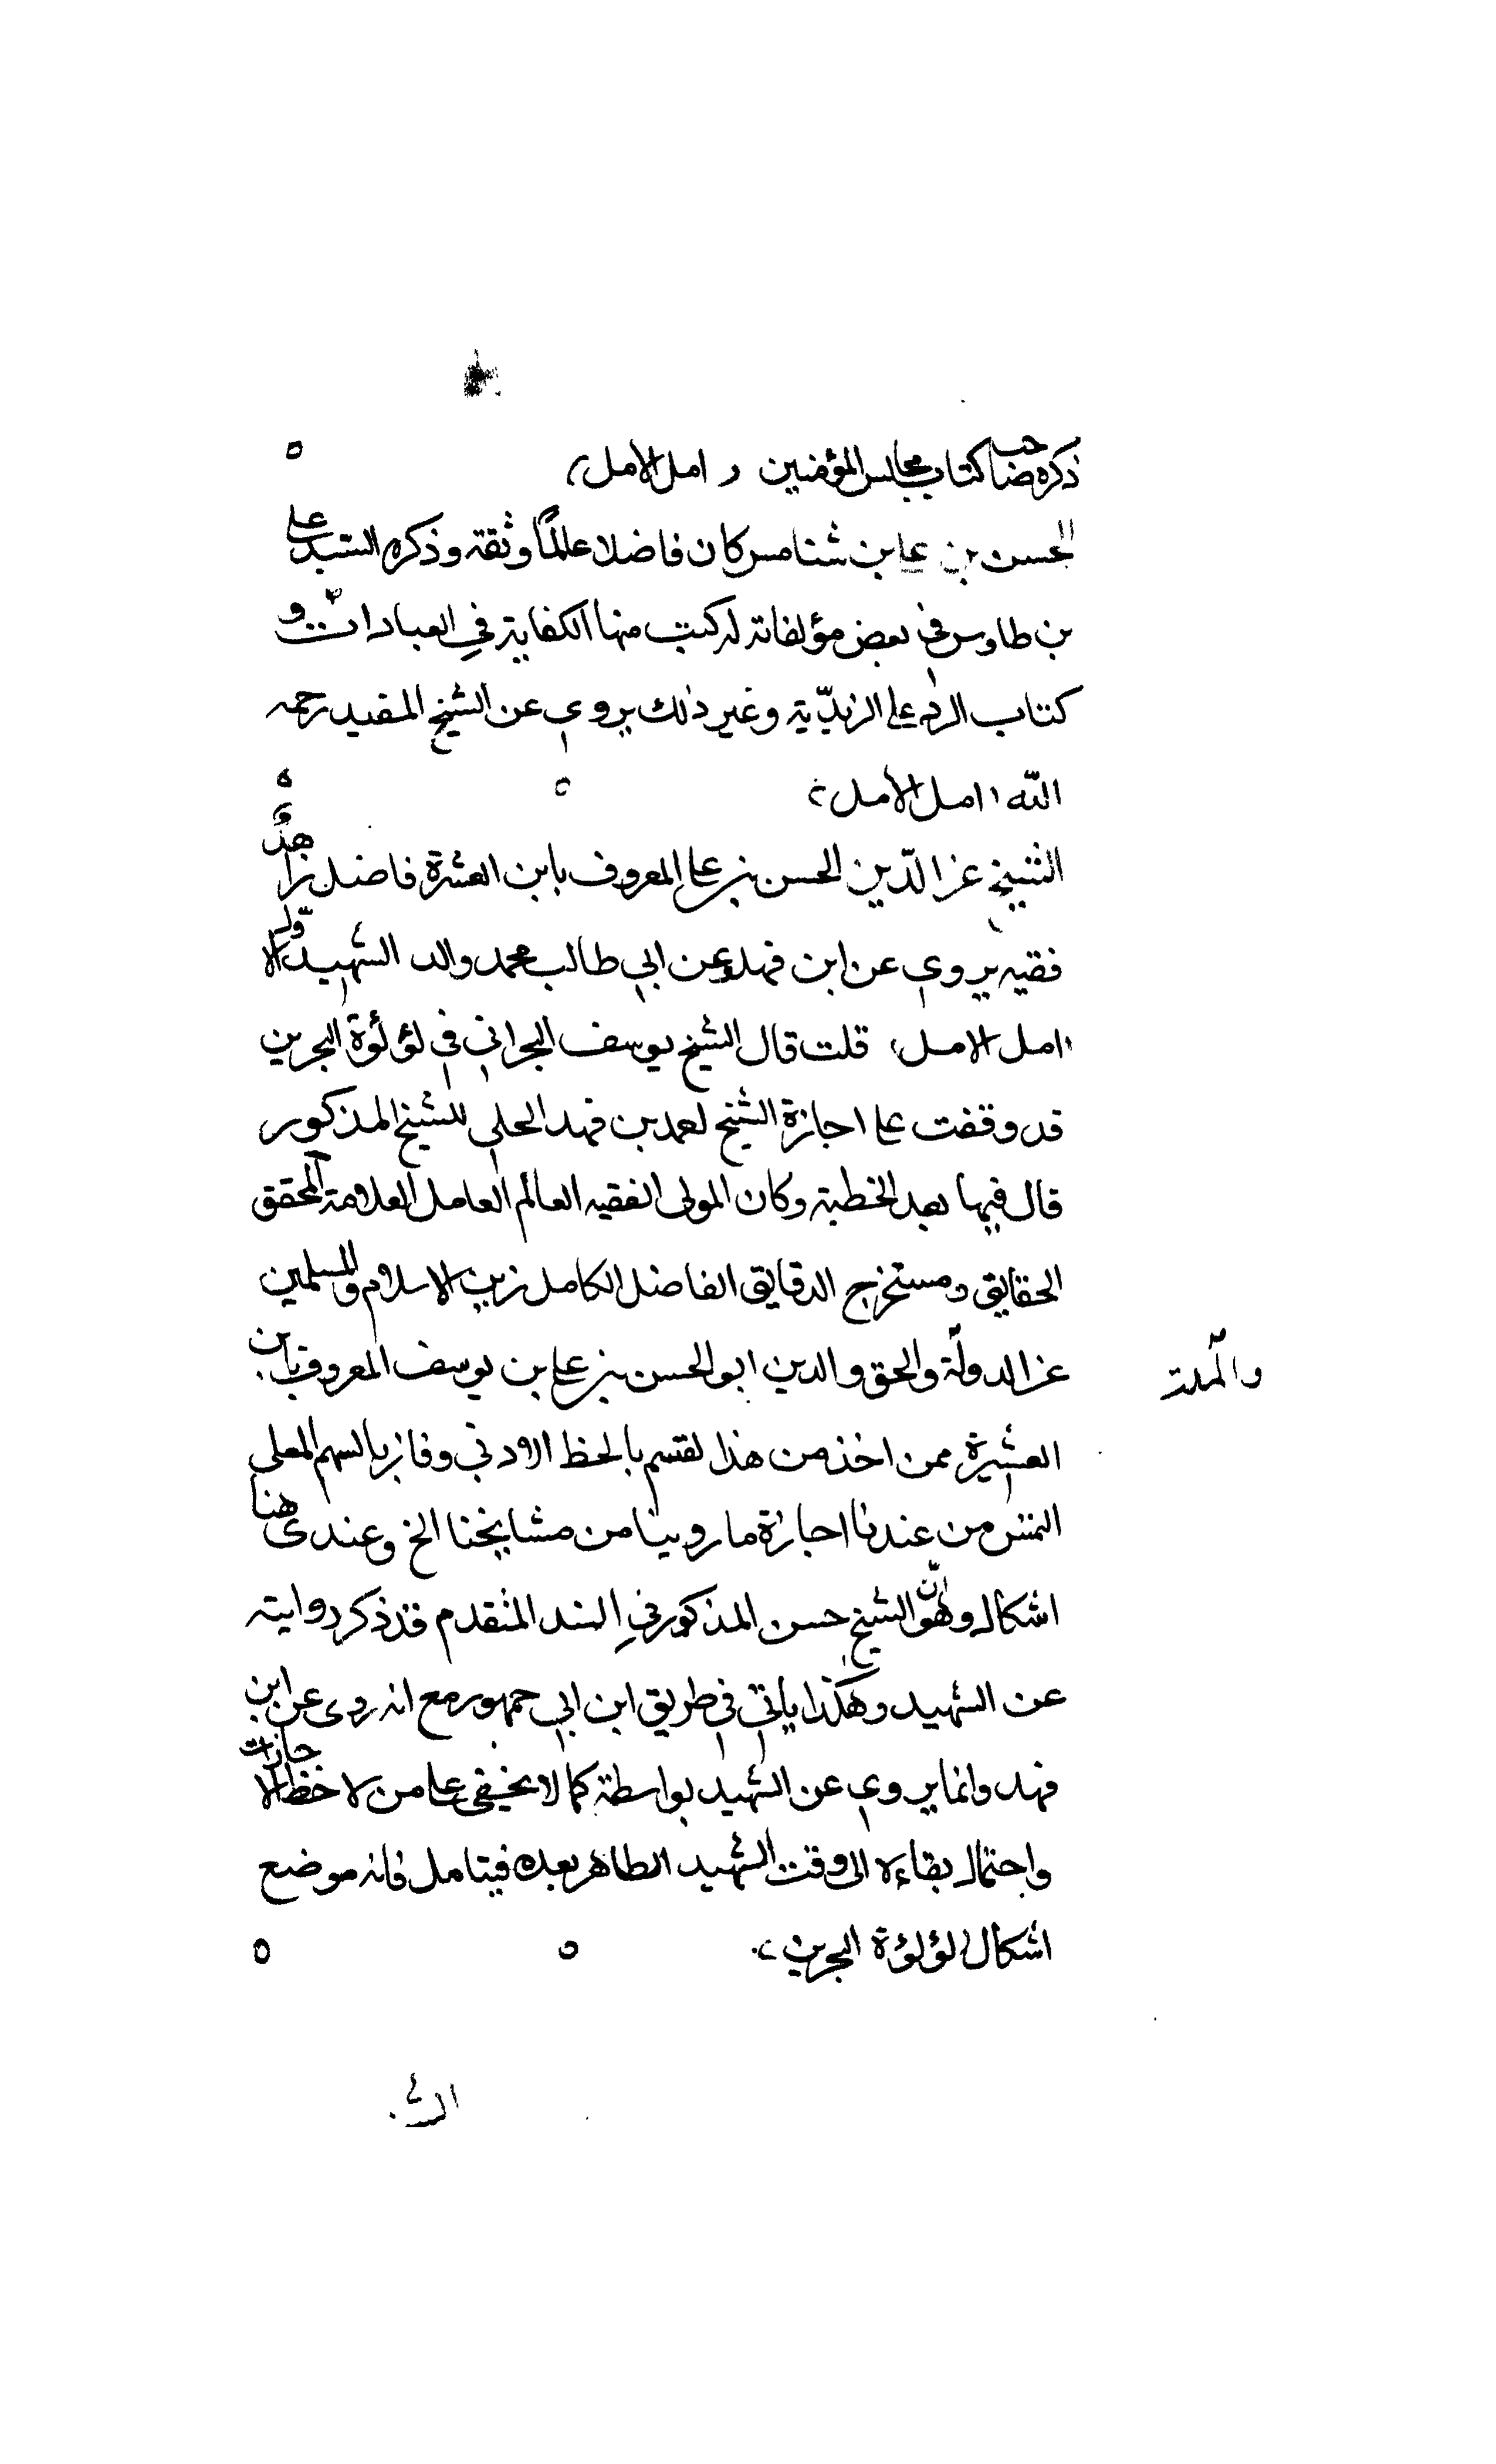 ذكره صاحب كتاب مجالس المؤمنين (امل الامل)
الحسن بن علي بن شناس كان فاضلا عالمًا وثقة وذكره السيد علي
بن طاوس في بعض مؤلفاته له كتب منها الكفاية في العبادات و
كتاب الرد على الزيدية وغير ذلك يروي عن الشيخ المفيد رحمه
الله (امل الامل)
الشيخ عز الدّين الحسن بن علي المعروف بابن العشرة فاضل زاهدٌ
فقيه يروي عن ابن فهد وعن ابي طالب محمد والد الشهيد الاوّل
(امل الامل) قلت قال الشيخ يوسف البحراني في لؤلؤة البحرين
قد وقفت على اجازة الشيخ احمد بن فهد الحلي للشيخ المذكور
قال فيها بعد الخطبة وكان المولى الفقيه العالم العامل العلامة المحقق
الحقايق ومستخرج الدقايق الفاضل الكامل زين الاسلام والمسلمين
عز الدولة والحق والدين ابو الحسن بن علي بن يوسف المعروف بابن
والملة
العشيرة ممن اخذ من هذا لقسم بالحظ الاوفى وفاز بالسهم المعلى
التمس من عندنا اجازة ما روينا من مشايخنا الخ وعندى هنا
اشكال وهو انّ الشيخ حسن المذكور في السند المتقدم قد ذكر روايته
عن الشهيد وهكذا ياتي في طريق ابن ابي جمهور مع انه روى عن ابن
فهد وانما يروي عن الشهيد بواسطة كما لا يخفى على من لاحظ الاجازات
واحتمال بقاءه الى وقت الشهيد الظاهر بعده فيتامل فانه موضع
اشكال (لؤلؤة البحرين)
الش